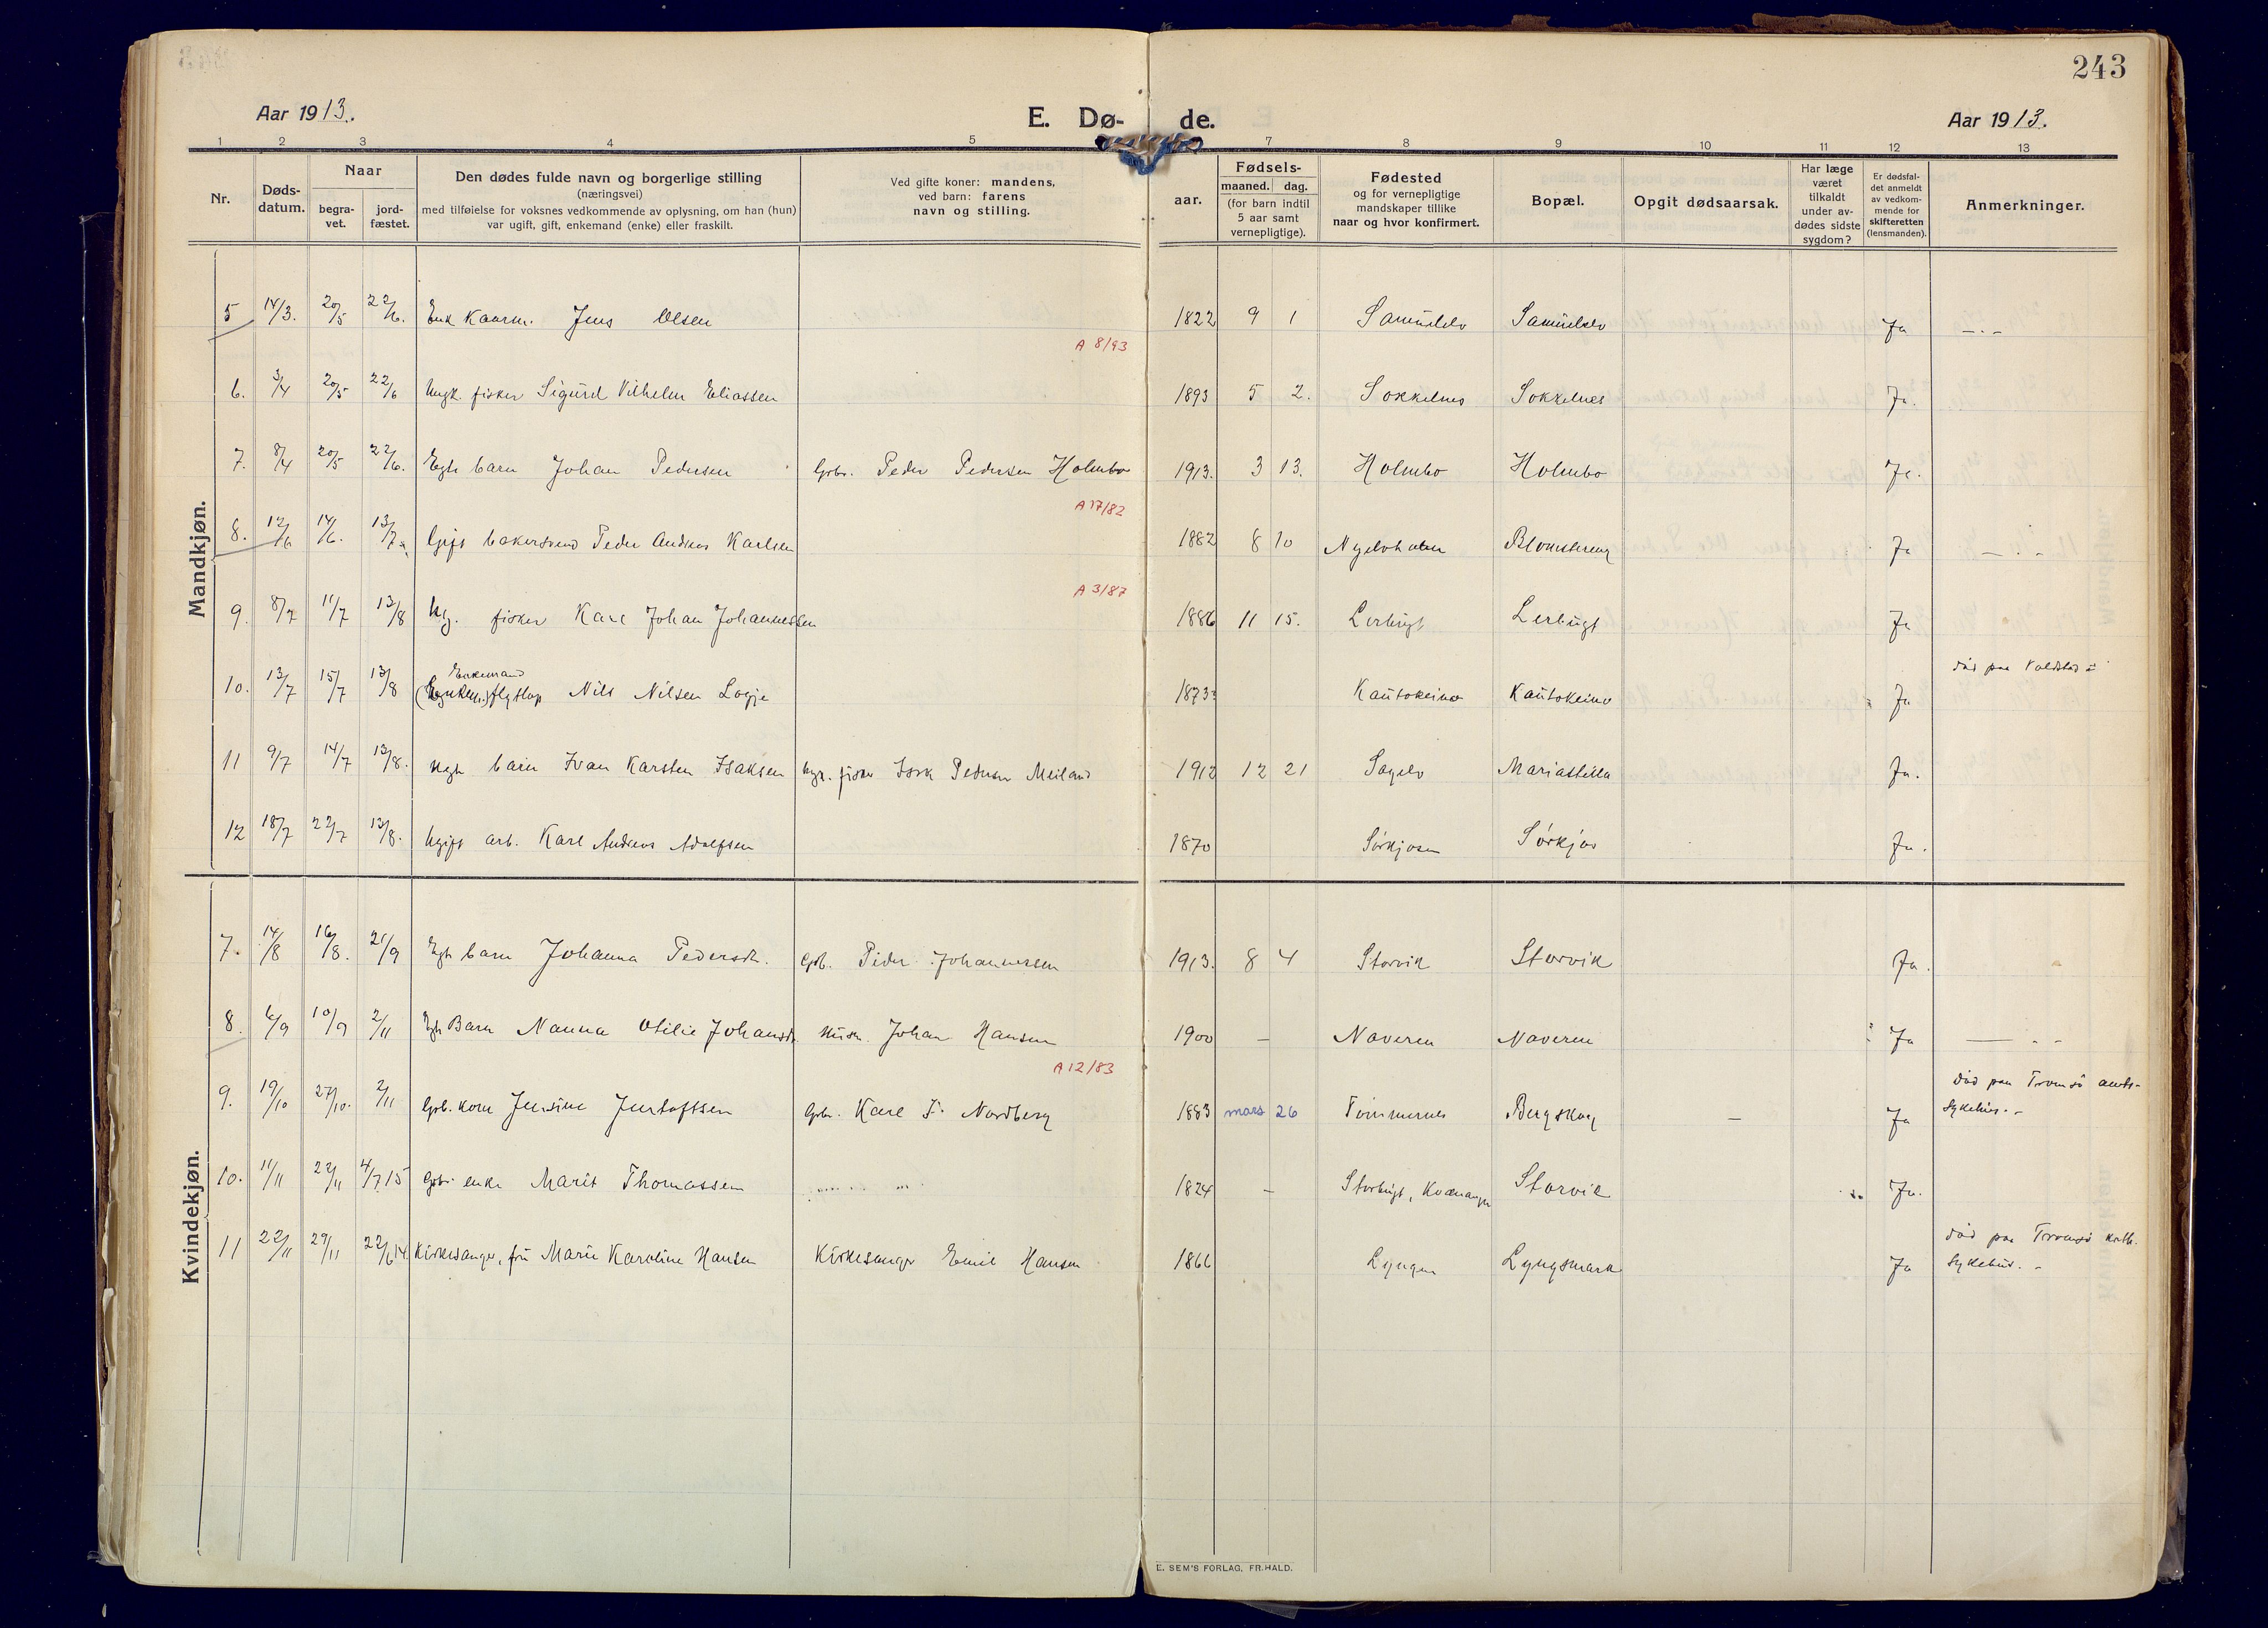 243
Aar 1913.
E. Dø- de.
Aar 1913.
1 2 3 4 5 7 8 9 10 11 12 13
Nr.
Døds-
datum.
Naar
begra-
vet.
jord-
fæstet.
Den dødes fulde navn og borgerlige stilling
(næringsvei)
med tilføielse for voksnes vedkommende av oplysning, om han (hun)
var ugift, gift, enkemand (enke) eller fraskilt.
Ved gifte koner: mandens,
ved barn: farens
navn og stilling.
aar.
Fødsels-
maaned. dag.
(for barn indtil
5 aar samt
vernepligtige).
Fødested
og for vernepligtige
mandskaper tillike
naar og hvor konfirmert.
Bopæl.
Opgit dødsaarsak.
Har læge
været
tilkaldt
under av-
dødes sidste
sygdom?
Er dødsfal-
det anmeldt
av vedkom-
mende for
skifteretten
(lensmanden).
Anmerkninger.
Mandkjøn.
5 14/3. 20/5 22/6. Enk Kaarm. Jens Olsen 1822 9 1 Samuelelv Samuelelv Ja — . —
A 8/93
6. 3/4 20/5 22/6 Ungk. fisker Sigurd Vilhelm Eliassen 1893 5 2. Sokkelnes Sokkelnes Ja.
7. 8/4 20/5 22/6. Egte barn Johan Pedersen Gbr. Peder Pedersen Holmbo 1913. 3 13. Holmbo Holmbo Ja.
A 17/82
8. 12/6 14/6. 13/7 Gift bakersvend Peder Andreas Karlsen 1882 8 10 Blomstereng Ja — . —
A 3/87
9. 8/7 11/7 13/8 Ug. fisker Karl Johan Johannessen 1886 11 15. Lerbugt Lerbugt Ja
10. 13/7 15/7 13/8 Enkemand flytlap Nils Nilsen Logje 1873 Kautokeino Kautokeino Ja død paa
11 9/7 14/7 13/8. Ugte barn Ivan Karsten Isaksen ungk. fisker Isak Pedersen Meiland 1912 12 21 Sagelv Mariastilla Ja.
12 18/7 22/7 13/8. Ugift arb. Karl Andreas Adolfsen 1870 Sörkjosen Sörkjos Ja.
Kvindekjøn.
7. 14/8 16/8. 21/9 Egte barn Johanna Pedersdt. Gbr. Peder Johannessen 1913. 8 4 Storvik Storvik Ja.
8. 6/9 10/9 2/11 Egte Barn Nanna Otilie Johansdt. Husm. Johan Hansen 1900 — Naveren Naveren Ja — . -
A 12/83
9. 19/10 27/10. 2/11 Gbr. kone Jensine Justoftsen Gbr. Karl F. Nordberg 1883 mars 26 Tömmernes Bergskog — Ja død paa Tromsö amts-
sykehus. -
10. 11/11 22/11 4/7.15 Gbr. enke Marit Thomassen 1824 — Storbugt, Kvænangen Storvik Ja.
11 22/11 29/11 22/6 14. Kirkesanger, fru Marie Karoline Hansen Kirkesanger Emil Hansen 1866 Lyngen Lyngsmark Ja død paa Tromsö kath.
sykehus. -
E. SEM'S FORLAG, FR.HALD.